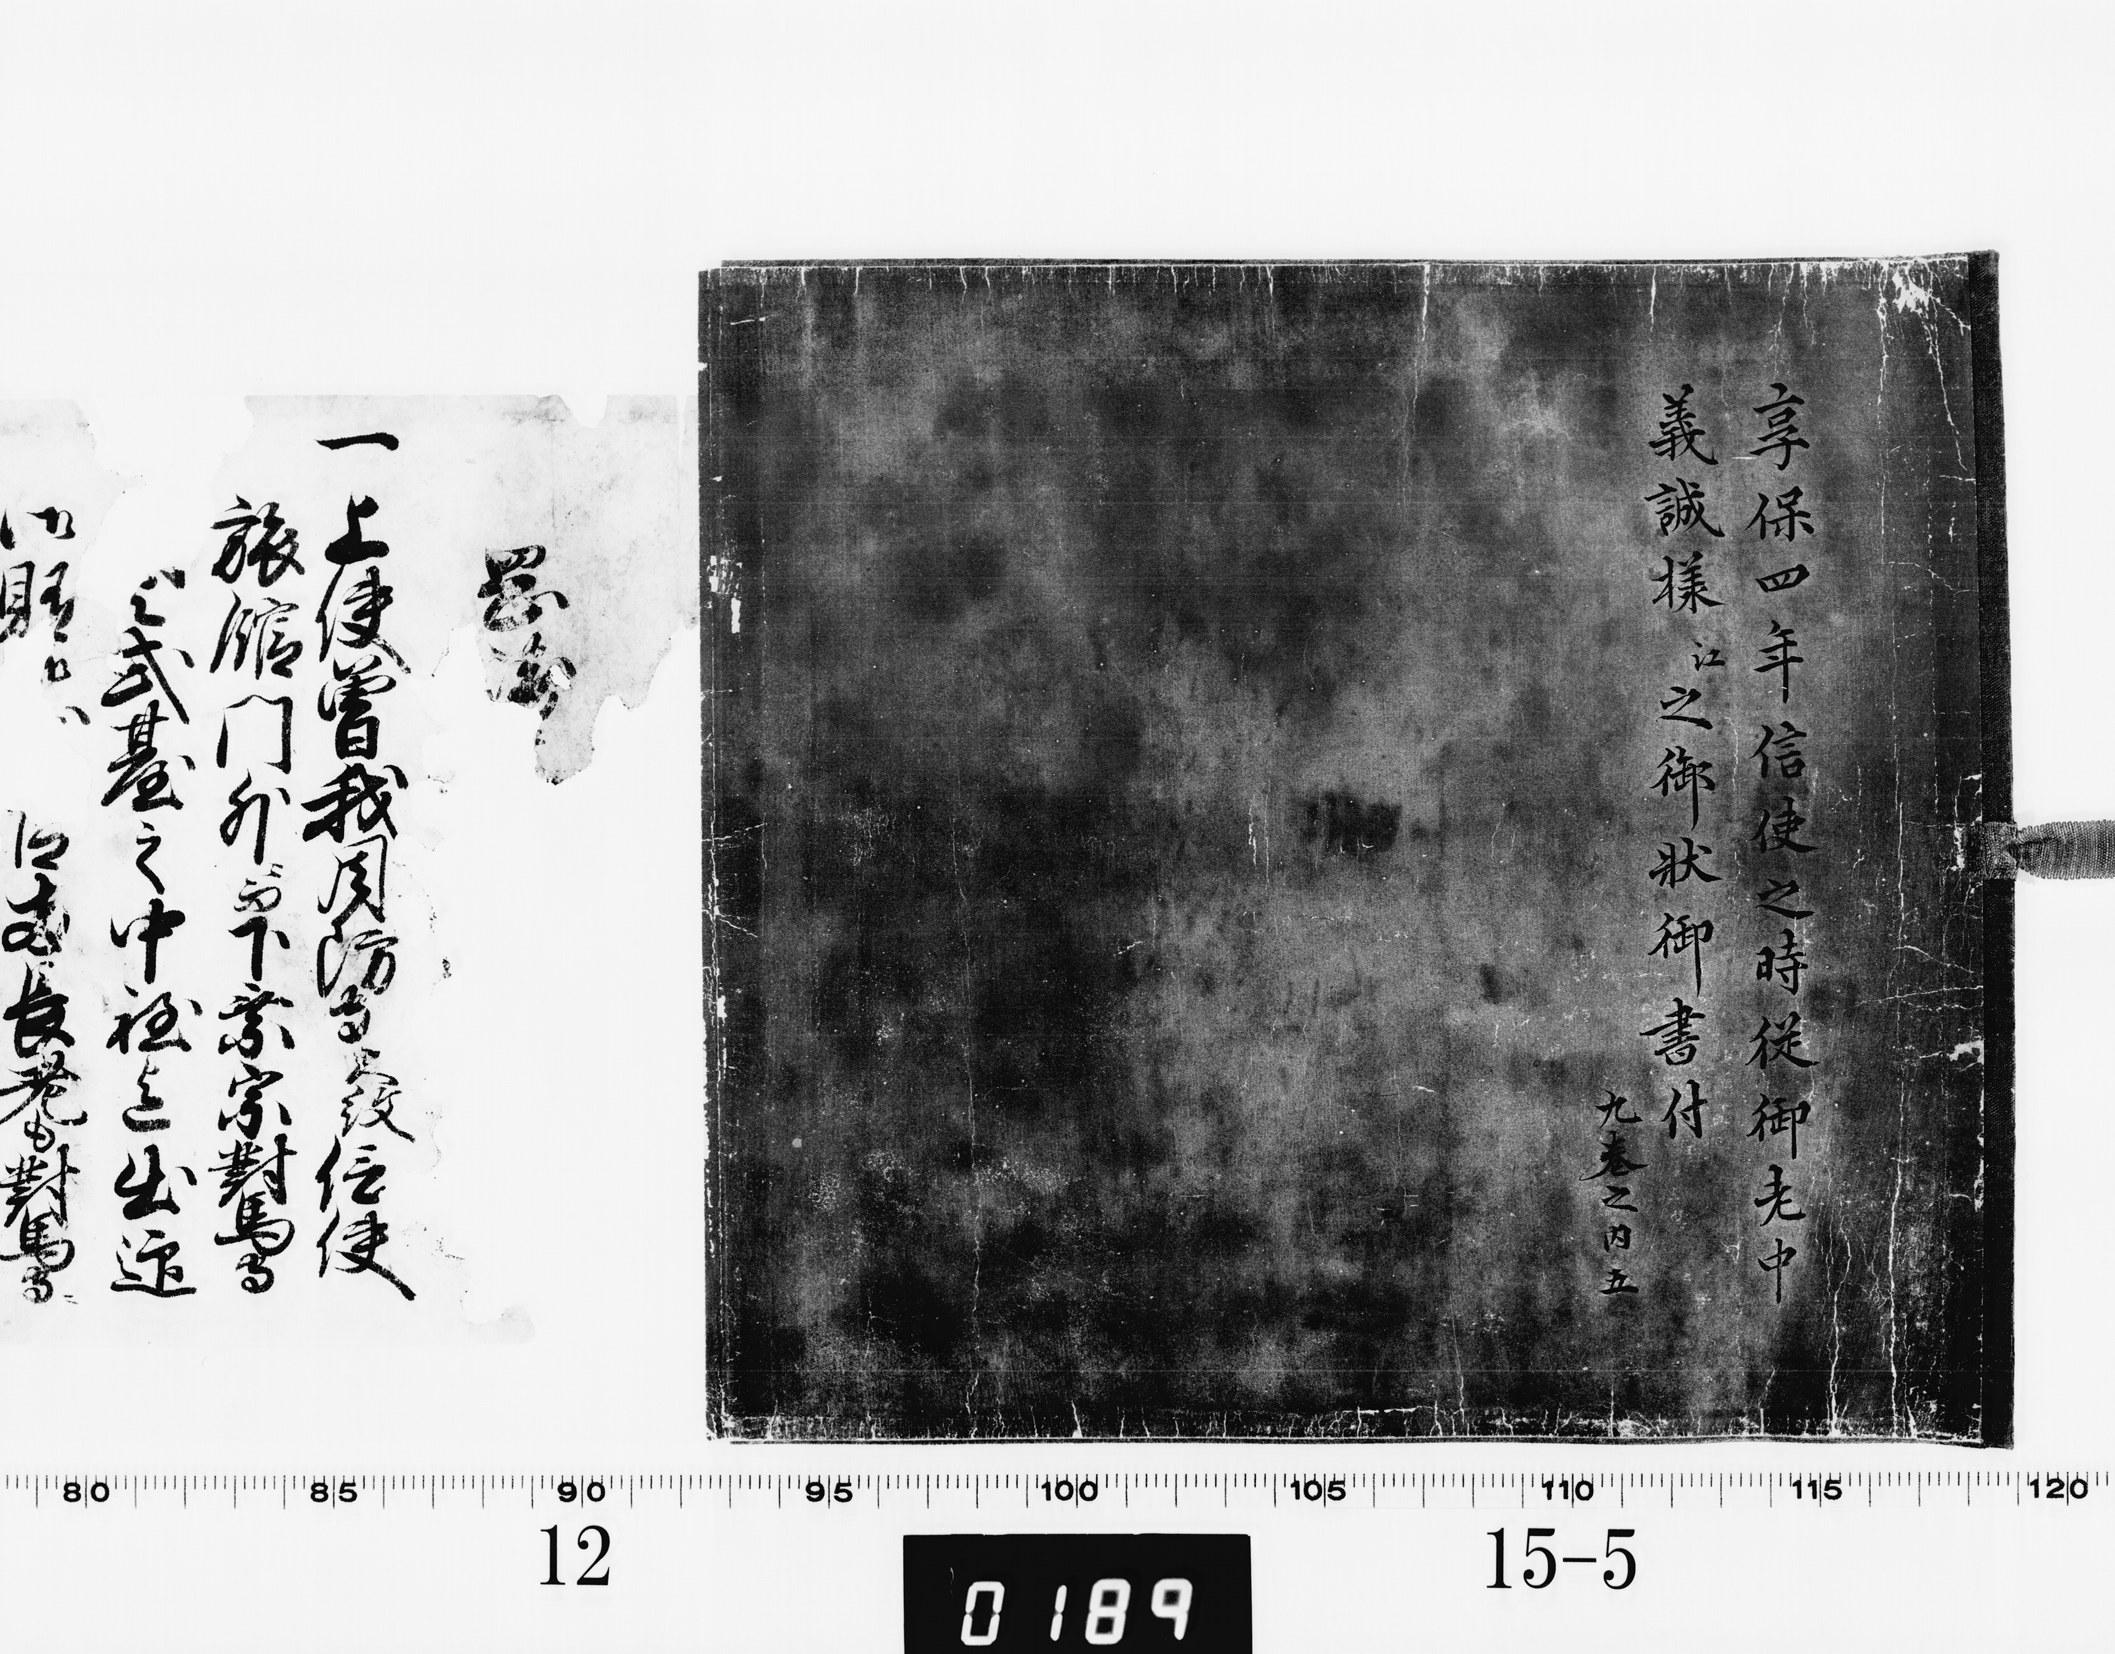 享保四年信使之時従御老中
義誠様江之御状御書付
九巻之内五
覚
一上使曽我周防守至信使
旅館門外而下乗宗對馬守
式臺之中程迄出迎
長老對馬守
80 85 90 95 100 105 110 115 120
12
15-5
0189